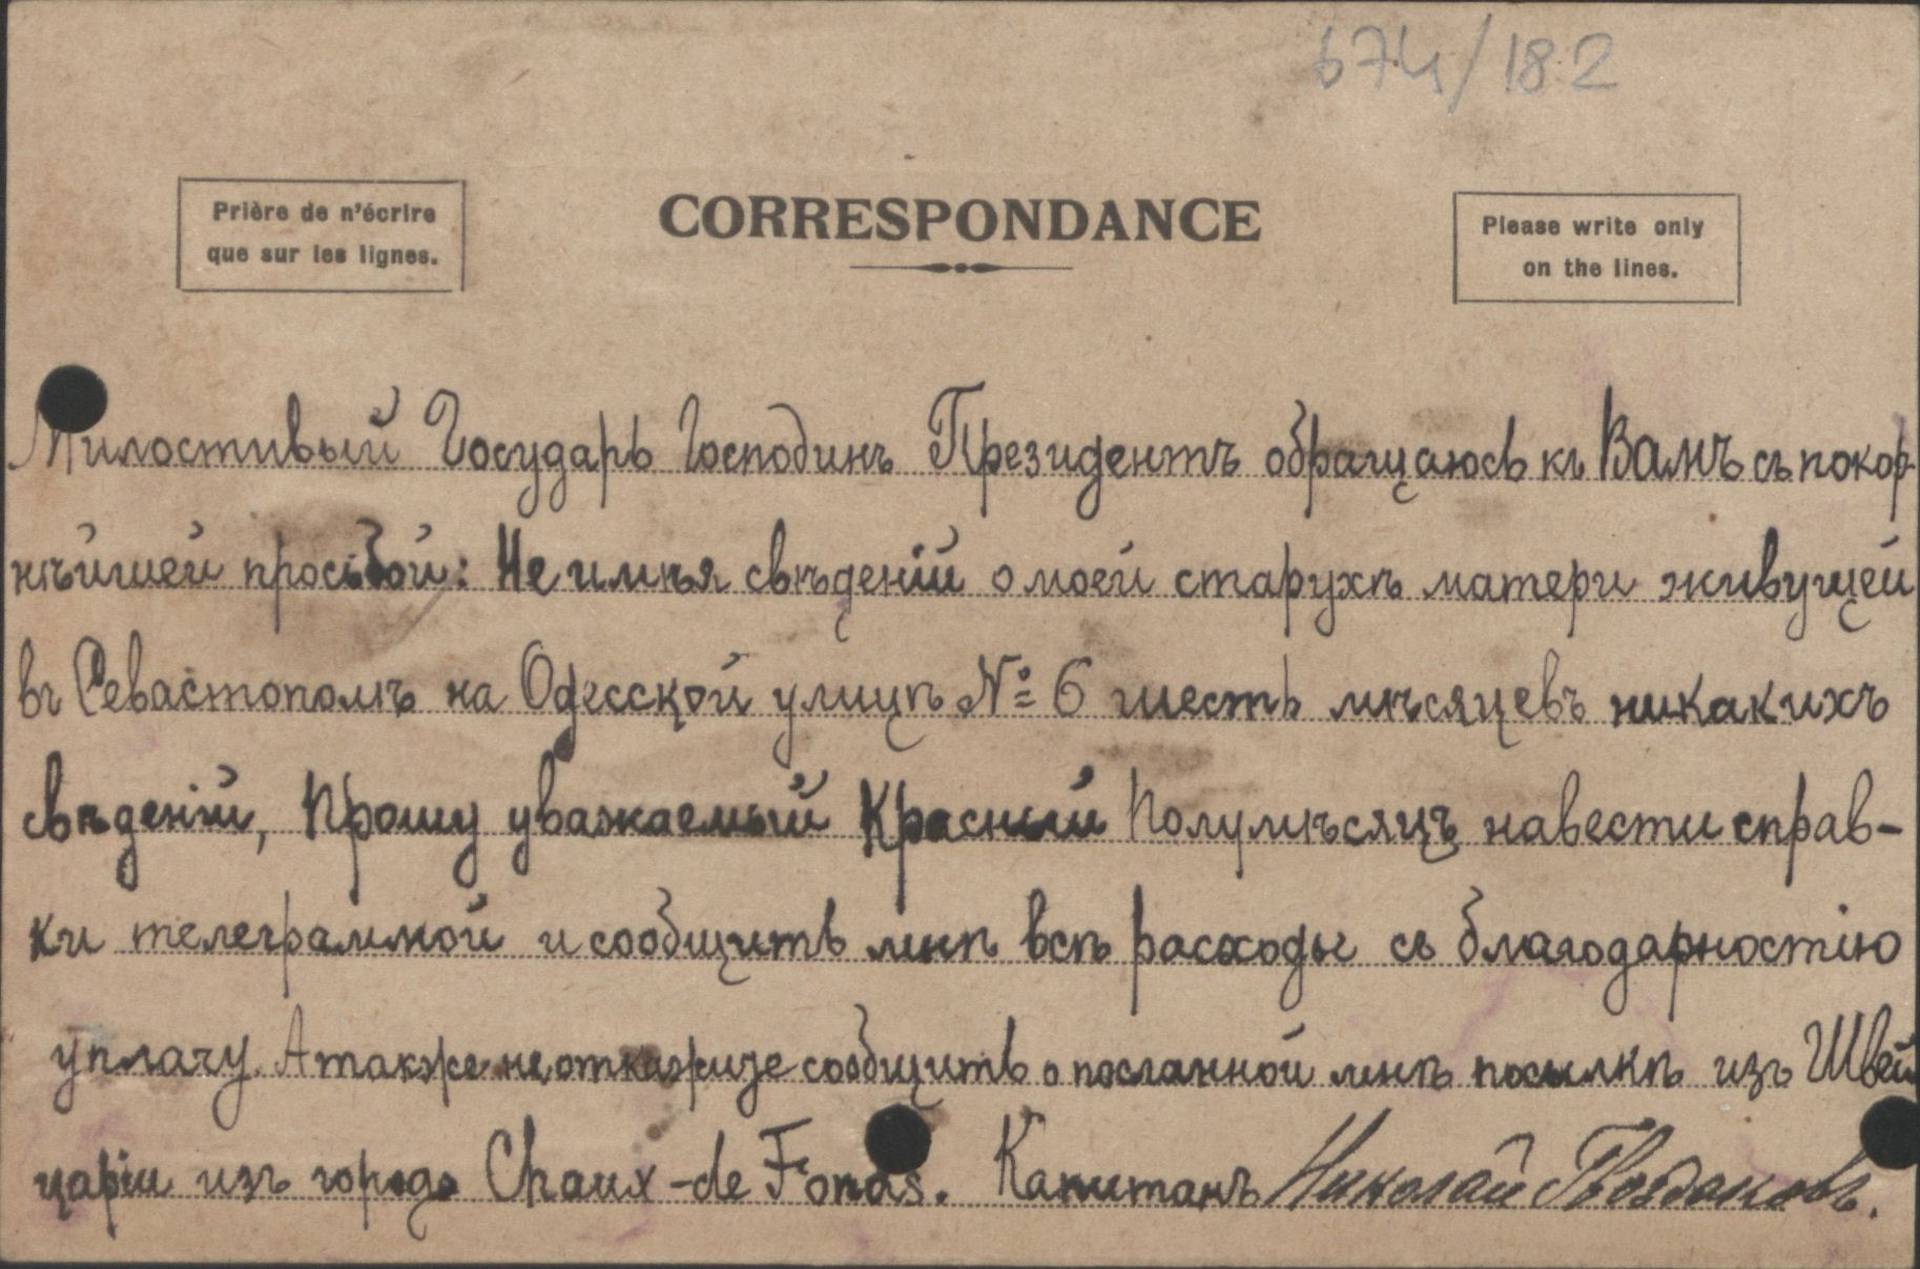 674/182
Prière de n'écrire
que sur les lignes.
CORRESPONDANCE
Please write only
on the lines.
Милостивый Государь Господинъ Президентъ обращаюсь къ Вамъ съ покор-
нѣйшей просьбой: Не имѣя свѣденій о моей старухѣ матери живущей
въ Севастополѣ на Одесской улицѣ № 6 шесть мѣсяцевъ никакихъ
свѣденій, Прошу уважаемый Красный Полумѣсяцъ навести справ-
ки телеграммой и сообщить мнѣ всѣ расходы съ благодарностію
уплачу. А также не откажите сообщить о посланной мнѣ посылкѣ изъ Швей
царіи изъ города Chaux-de Fonds. Капитанъ Николай Гвоздановъ.